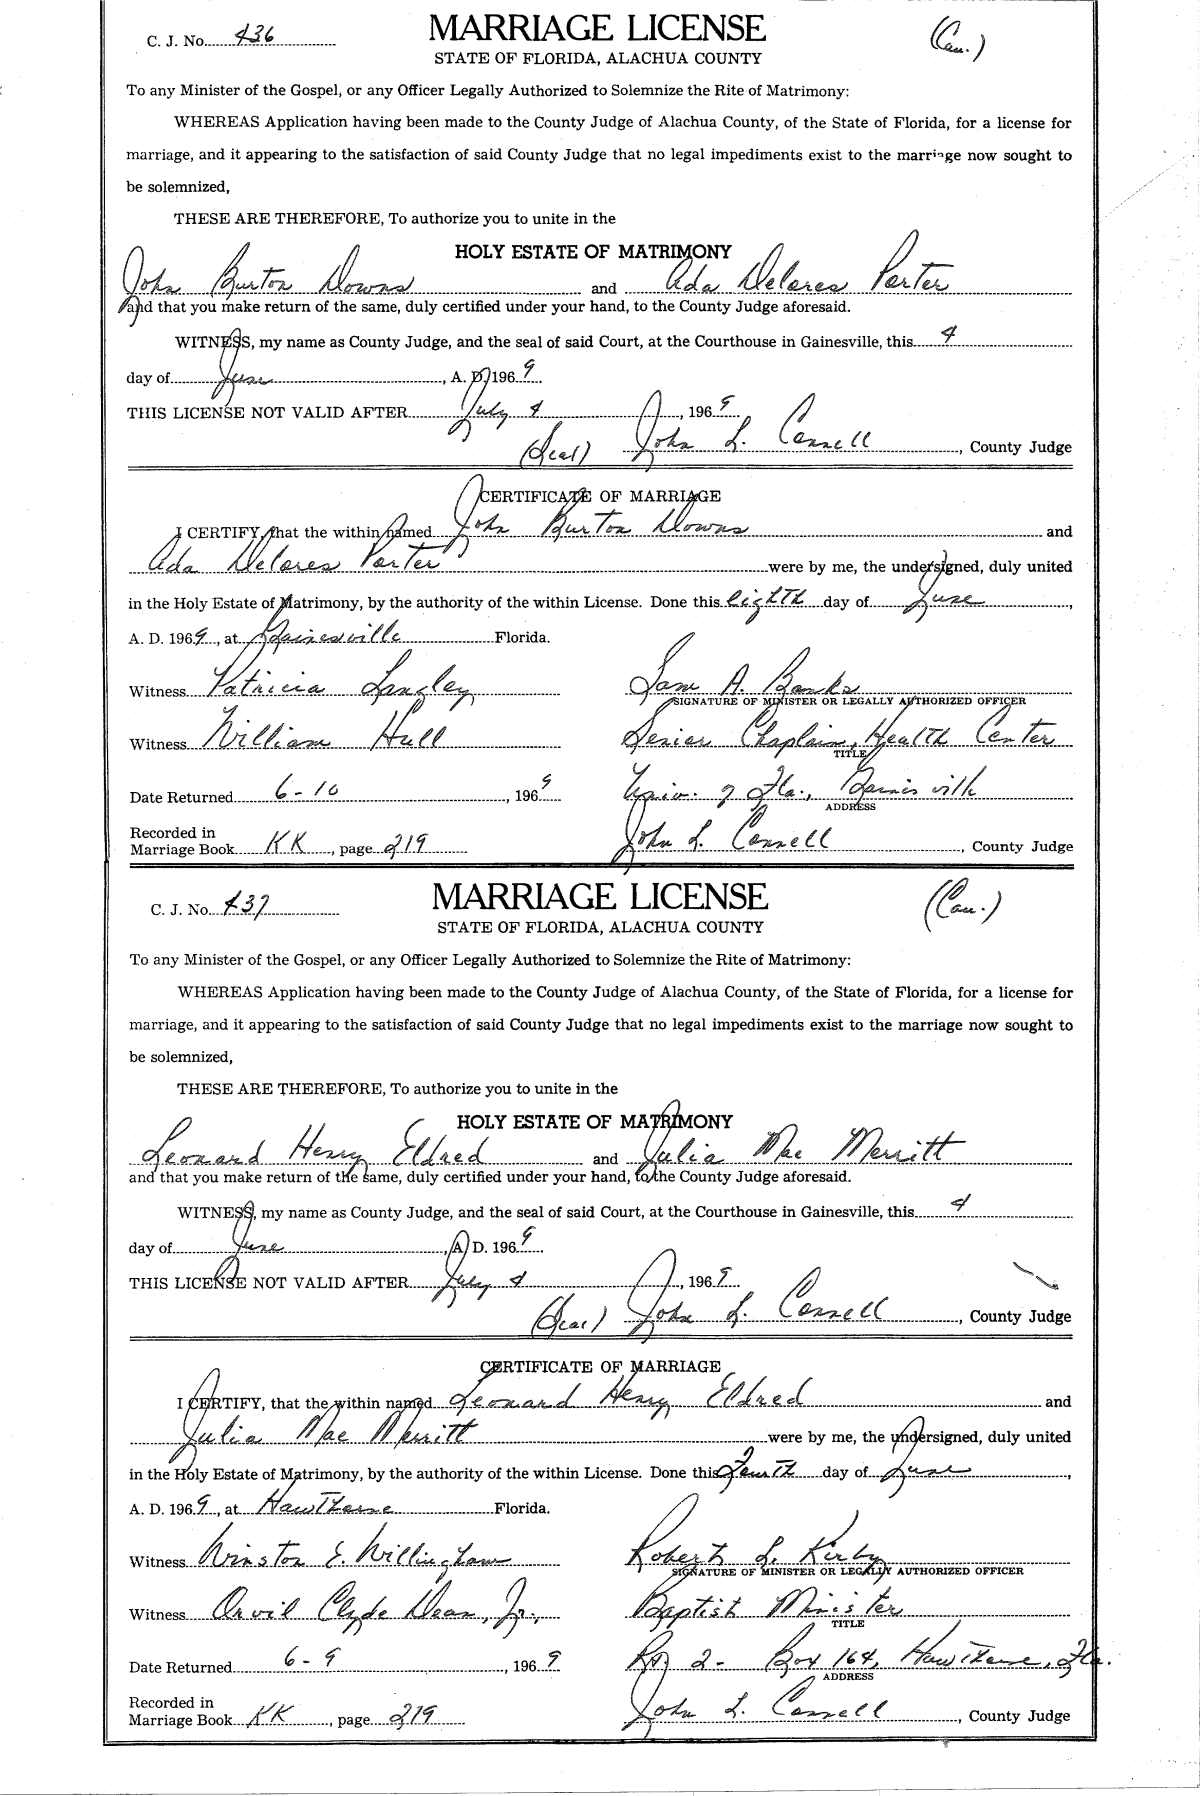 C. J. No. 436 MARRIAGE LICENSE (Cau.)
STATE OF FLORIDA, ALACHUA COUNTY
To any Minister of the Gospel, or any Officer Legally Authorized to Solemnize the Rite of Matrimony:
WHEREAS Application having been made to the County Judge of Alachua County, of the State of Florida, for a license for
marriage, and it appearing to the satisfaction of said County Judge that no legal impediments exist to the marriage now sought to
be solemnized,
THESE ARE THEREFORE, To authorize you to unite in the
HOLY ESTATE OF MATRIMONY
John Burton Downs and Ada Delores Porter
and that you make return of the same, duly certified under your hand, to the County Judge aforesaid.
WITNESS, my name as County Judge, and the seal of said Court, at the Courthouse in Gainesville, this 4
day of June, A. D. 1969
THIS LICENSE NOT VALID AFTER July 4, 1969
(Seal) John L. Connell, County Judge
CERTIFICATE OF MARRIAGE
I CERTIFY, that the within named John Burton Downs and
Ada Delores Porter were by me, the undersigned, duly united
in the Holy Estate of Matrimony, by the authority of the within License. Done this eighth day of June,
A. D. 1969, at Gainesville Florida.
Witness Patricia Langley Sam A. Banks
SIGNATURE OF MINISTER OR LEGALLY AUTHORIZED OFFICER
Witness William Hull Senior Chaplain, Health Center
TITLE
Date Returned 6-10, 1969 Univ. of Fla., Gainesville
ADDRESS
Recorded in
Marriage Book KK, page 219 John L. Connell, County Judge
C. J. No. 437 MARRIAGE LICENSE (Cau.)
STATE OF FLORIDA, ALACHUA COUNTY
To any Minister of the Gospel, or any Officer Legally Authorized to Solemnize the Rite of Matrimony:
WHEREAS Application having been made to the County Judge of Alachua County, of the State of Florida, for a license for
marriage, and it appearing to the satisfaction of said County Judge that no legal impediments exist to the marriage now sought to
be solemnized,
THESE ARE THEREFORE, To authorize you to unite in the
HOLY ESTATE OF MATRIMONY
Leonard Henry Eldred and Julia Mae Merritt
and that you make return of the same, duly certified under your hand, to the County Judge aforesaid.
WITNESS, my name as County Judge, and the seal of said Court, at the Courthouse in Gainesville, this 4
day of June, A. D. 1969
THIS LICENSE NOT VALID AFTER July 4, 1969
(Seal) John L. Connell, County Judge
CERTIFICATE OF MARRIAGE
I CERTIFY, that the within named Leonard Henry Eldred and
Julia Mae Merritt were by me, the undersigned, duly united
in the Holy Estate of Matrimony, by the authority of the within License. Done this Fourth day of June,
A. D. 1969, at Hawthorne Florida.
Witness Winston E. Willingham Robert L. Kirby
SIGNATURE OF MINISTER OR LEGALLY AUTHORIZED OFFICER
Witness Orvil Clyde Dean, Jr., Baptist Minister
TITLE
Date Returned 6-9, 1969 Rt 2- Box 164, Hawthorne, Fla.
ADDRESS
Recorded in
Marriage Book KK, page 219 John L. Connell, County Judge